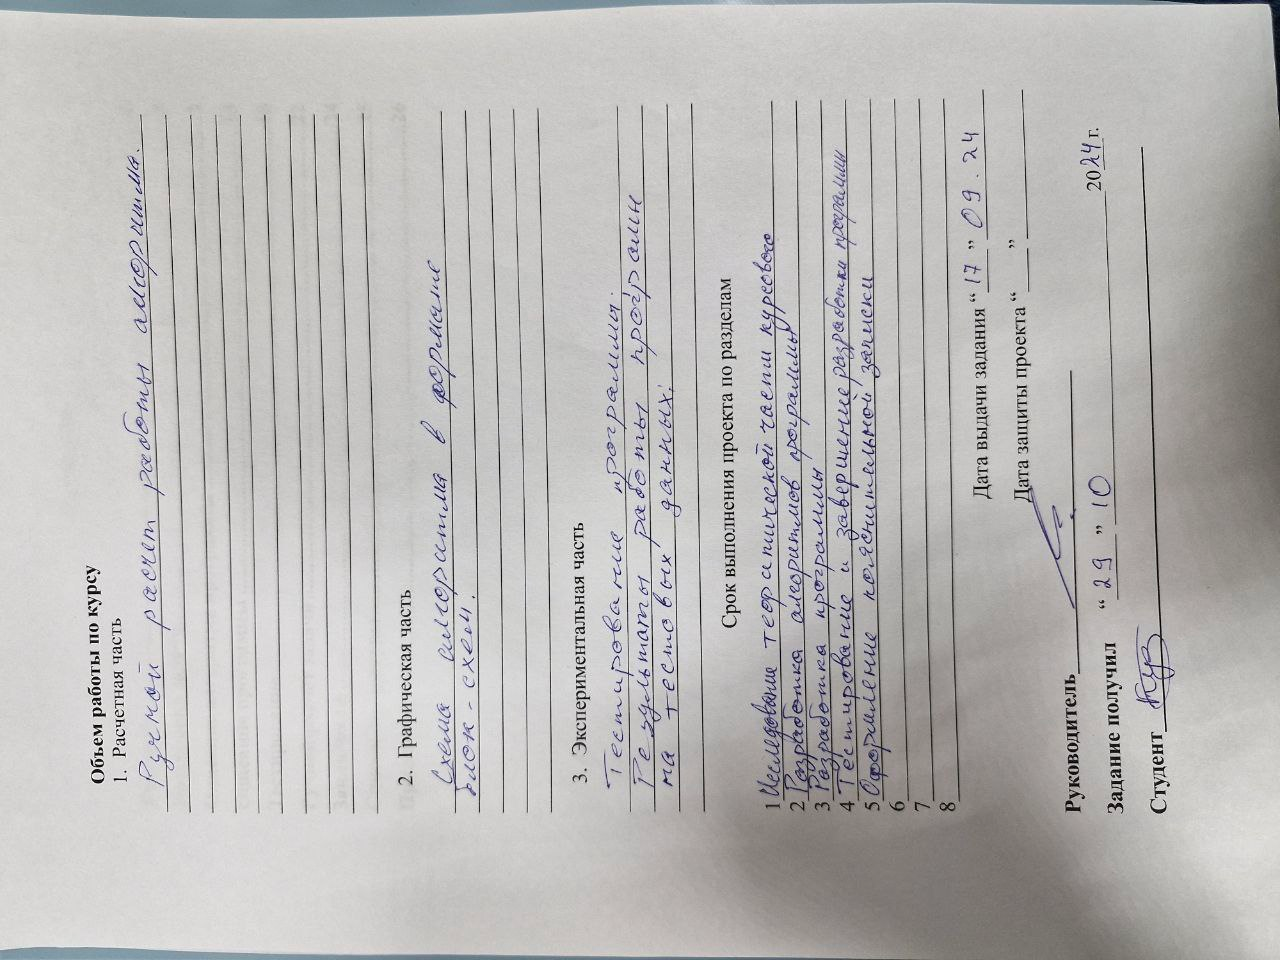 Объем работы по курсу
1. Расчетная часть
Ручной расчет работы алгоритма.
2. Графическая часть
Схема алгоритма в формате
блок-схем.
3. Экспериментальная часть
Тестирование программы.
Результаты работы програмн
на тестовых данных.
Срок выполнения проекта по разделам
1 Исследование теоритической части курсового
2 Разработка алгоритмов программы
3 Разработка программы
4 Тестирование и завершение разработки программы
5 Оформление пояснительной записки
6
7
8
Дата выдачи задания “17” 09.24
Дата защиты проекта “ ”
Руководитель
Задание получил “29” 10 2024г.
Студент